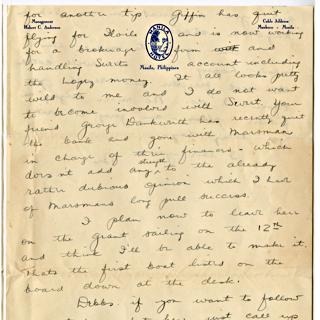 for another tip. Giffin has quit
Management
Hubert C. Anderson
MANILA HOTEL
Cable Address
Manhotel - Manila
flying for Iloilo and is now working
for a brokerage firm and
Manila, Philippines
handling Swirts account including
the Lopez money. It all looks pretty
wild to me and I do not want
to become involved with Swirt. Your
friend George Dankwerth has recently quit
the bank and gone with Marsman
in charge of their finances - which
doesnt add any strength to the already
rather dubious opinion which I have
of Marsmans long pull success.
I plan now to leave here
on the Grant sailing on the 12th
and think I'll be able to make it.
Thats the first boat listed on the
board down at the desk.
Dibbs. if you want to follow
just call up